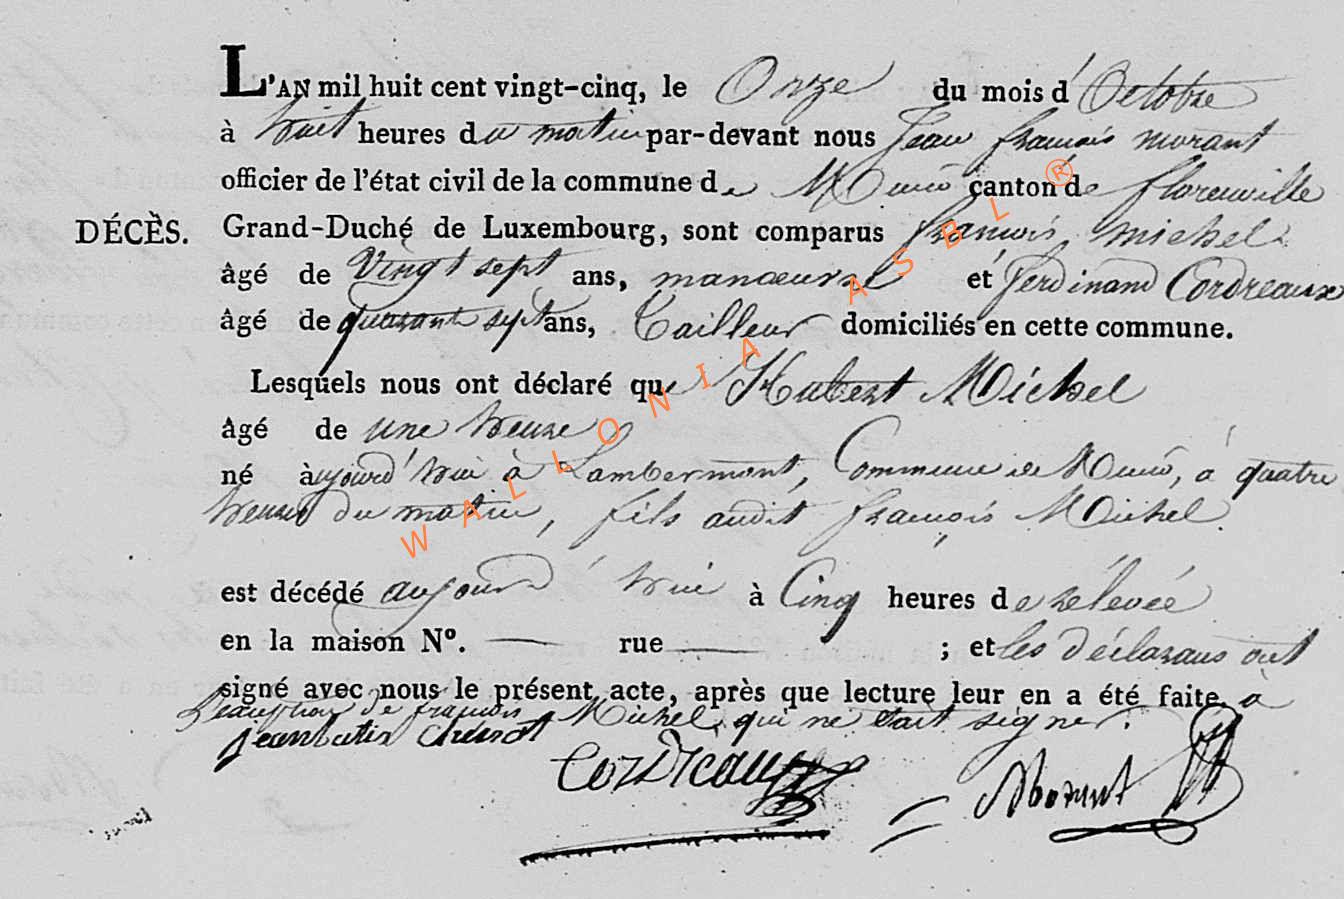 L'AN mil huit cent vingt-cinq, le Onze du mois d'Octobre
à huit heures du matin par-devant nous Jean françois morant
officier de l'état civil de la commune de Muno canton de florenville
DÉCÈS. Grand-Duché de Luxembourg, sont comparus françois michel
âgé de Vingt sept ans, manœuvre et ferdinand Cordreaux
âgé de quarant sept ans, Tailleur domiciliés en cette commune.
Lesquels nous ont déclaré que Hubert Michel
âgé de une heure
né àujourd'hui à Lambermont, Commune de Muno, à quatre
heures du matin, fils audit françois Michel.
est décédé aujourd'hui à Cinq heures de rélevée
en la maison N°. — rue — ; et les déclarans ont
signé avec nous le présent acte, après que lecture leur en a été faite, à
l'exception de françois Michel qui ne sait signer.
Cordreaux
Morant
WALLONIA ASBL ®